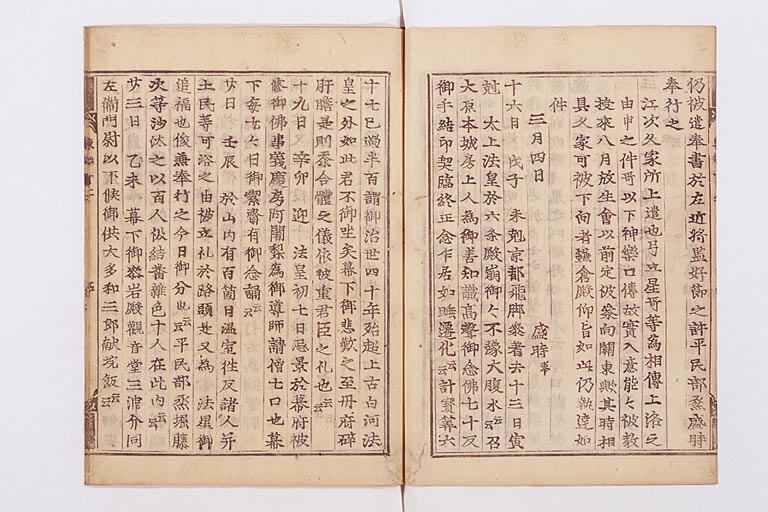 仍被遣奉書於左近将監好節之許平民部烝盛時
奉行之
江次久家所上遣也弓立星哥等為相傳上洛之
由申之件哥以下神樂口傳故實入意能々被教
授來八月放生會以前定被参向關東歟其時相
具久家可被下向者鎌倉殿仰旨如此仍執達如
件
三月四日
盛時奉
十六日 戊子 未剋京都飛脚参著去十三日寅
剋 太上法皇於六条殿崩御々不豫大腹水云々召
大原本城房上人為御善知識高聲御念佛七十反
御手結印契臨終正念乍居如睡遷化云々計寳筭六
十七已過半百謂御治世四十年殆超上古白河法
皇之外如此君不御坐矣幕下御悲歎之至丹府碎
肝膽是則忝合體之儀依被重君臣之礼也云々
十九日 辛卯 迎 法皇初七日忌景於幕府被
修御佛事義慶房阿闍梨為御導師請僧七口也幕
下毎七々日御潔齋有御念誦云々
廿日 壬辰 於山内有百箇日温室徃反諸人并
土民等可浴之由被立札於路頭是又為 法皇御
追福也俊兼奉行之今日御分也云々平民部烝堀藤
次等沙汰之以百人被結番雜色十人在此内云々
廿三日 乙未 幕下御参岩殿觀音堂三浦介同
左衛門尉以下候御供大多和三郎献垸飯云々